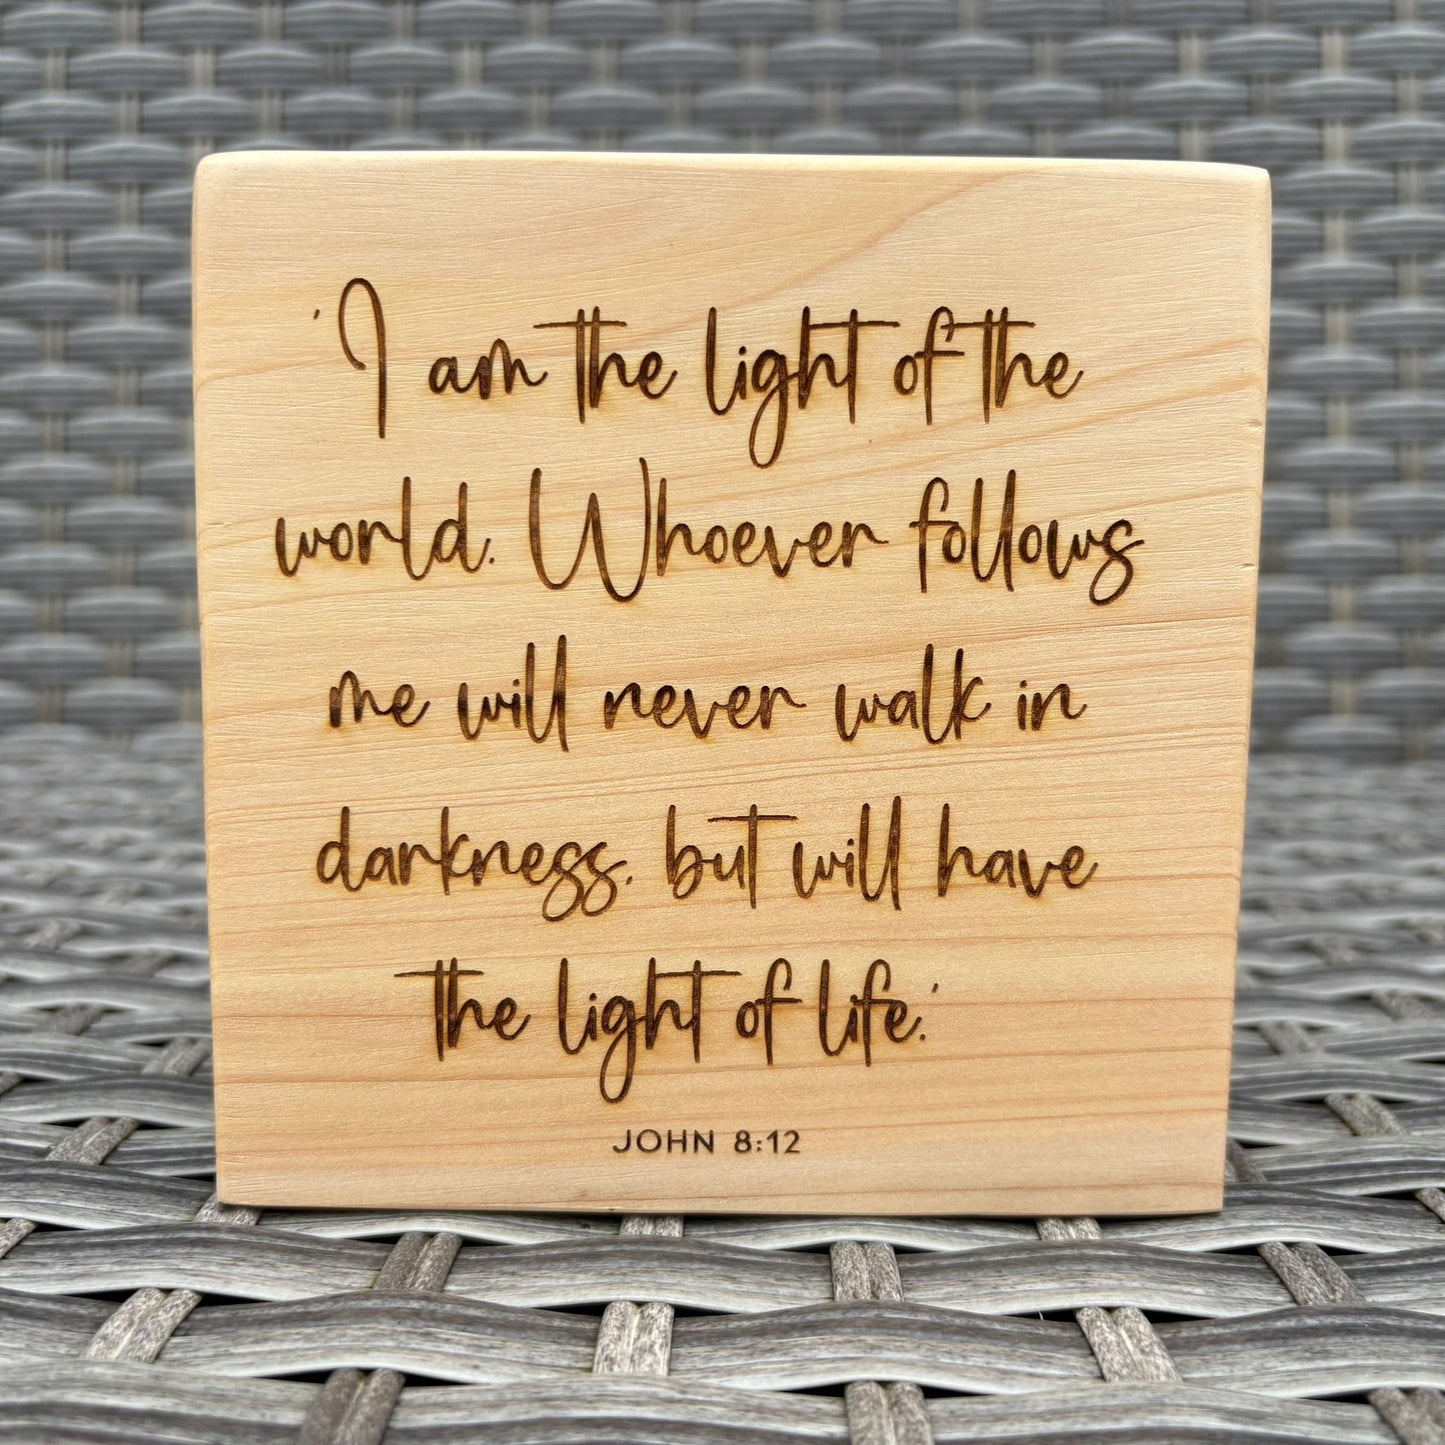 'I am the light of the
world. Whoever follows
me will never walk in
darkness, but will have
the light of life.'
JOHN 8:12